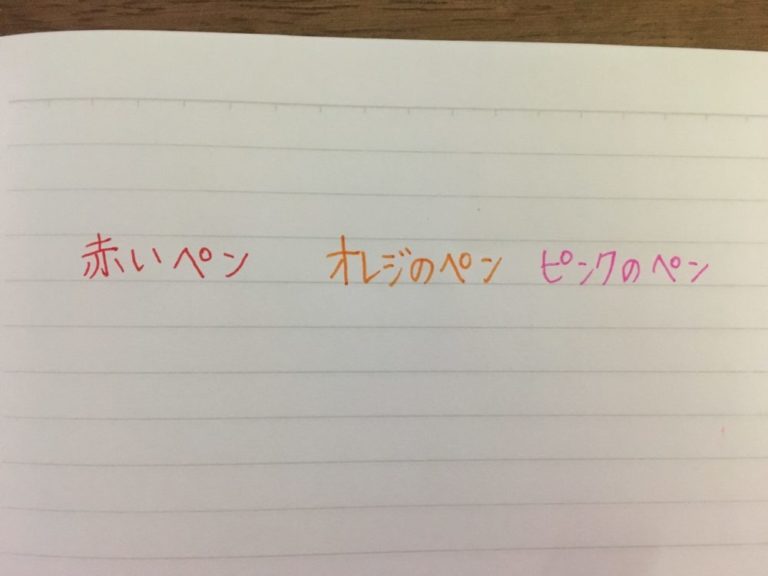 赤いペン オレジのペン ピンクのペン